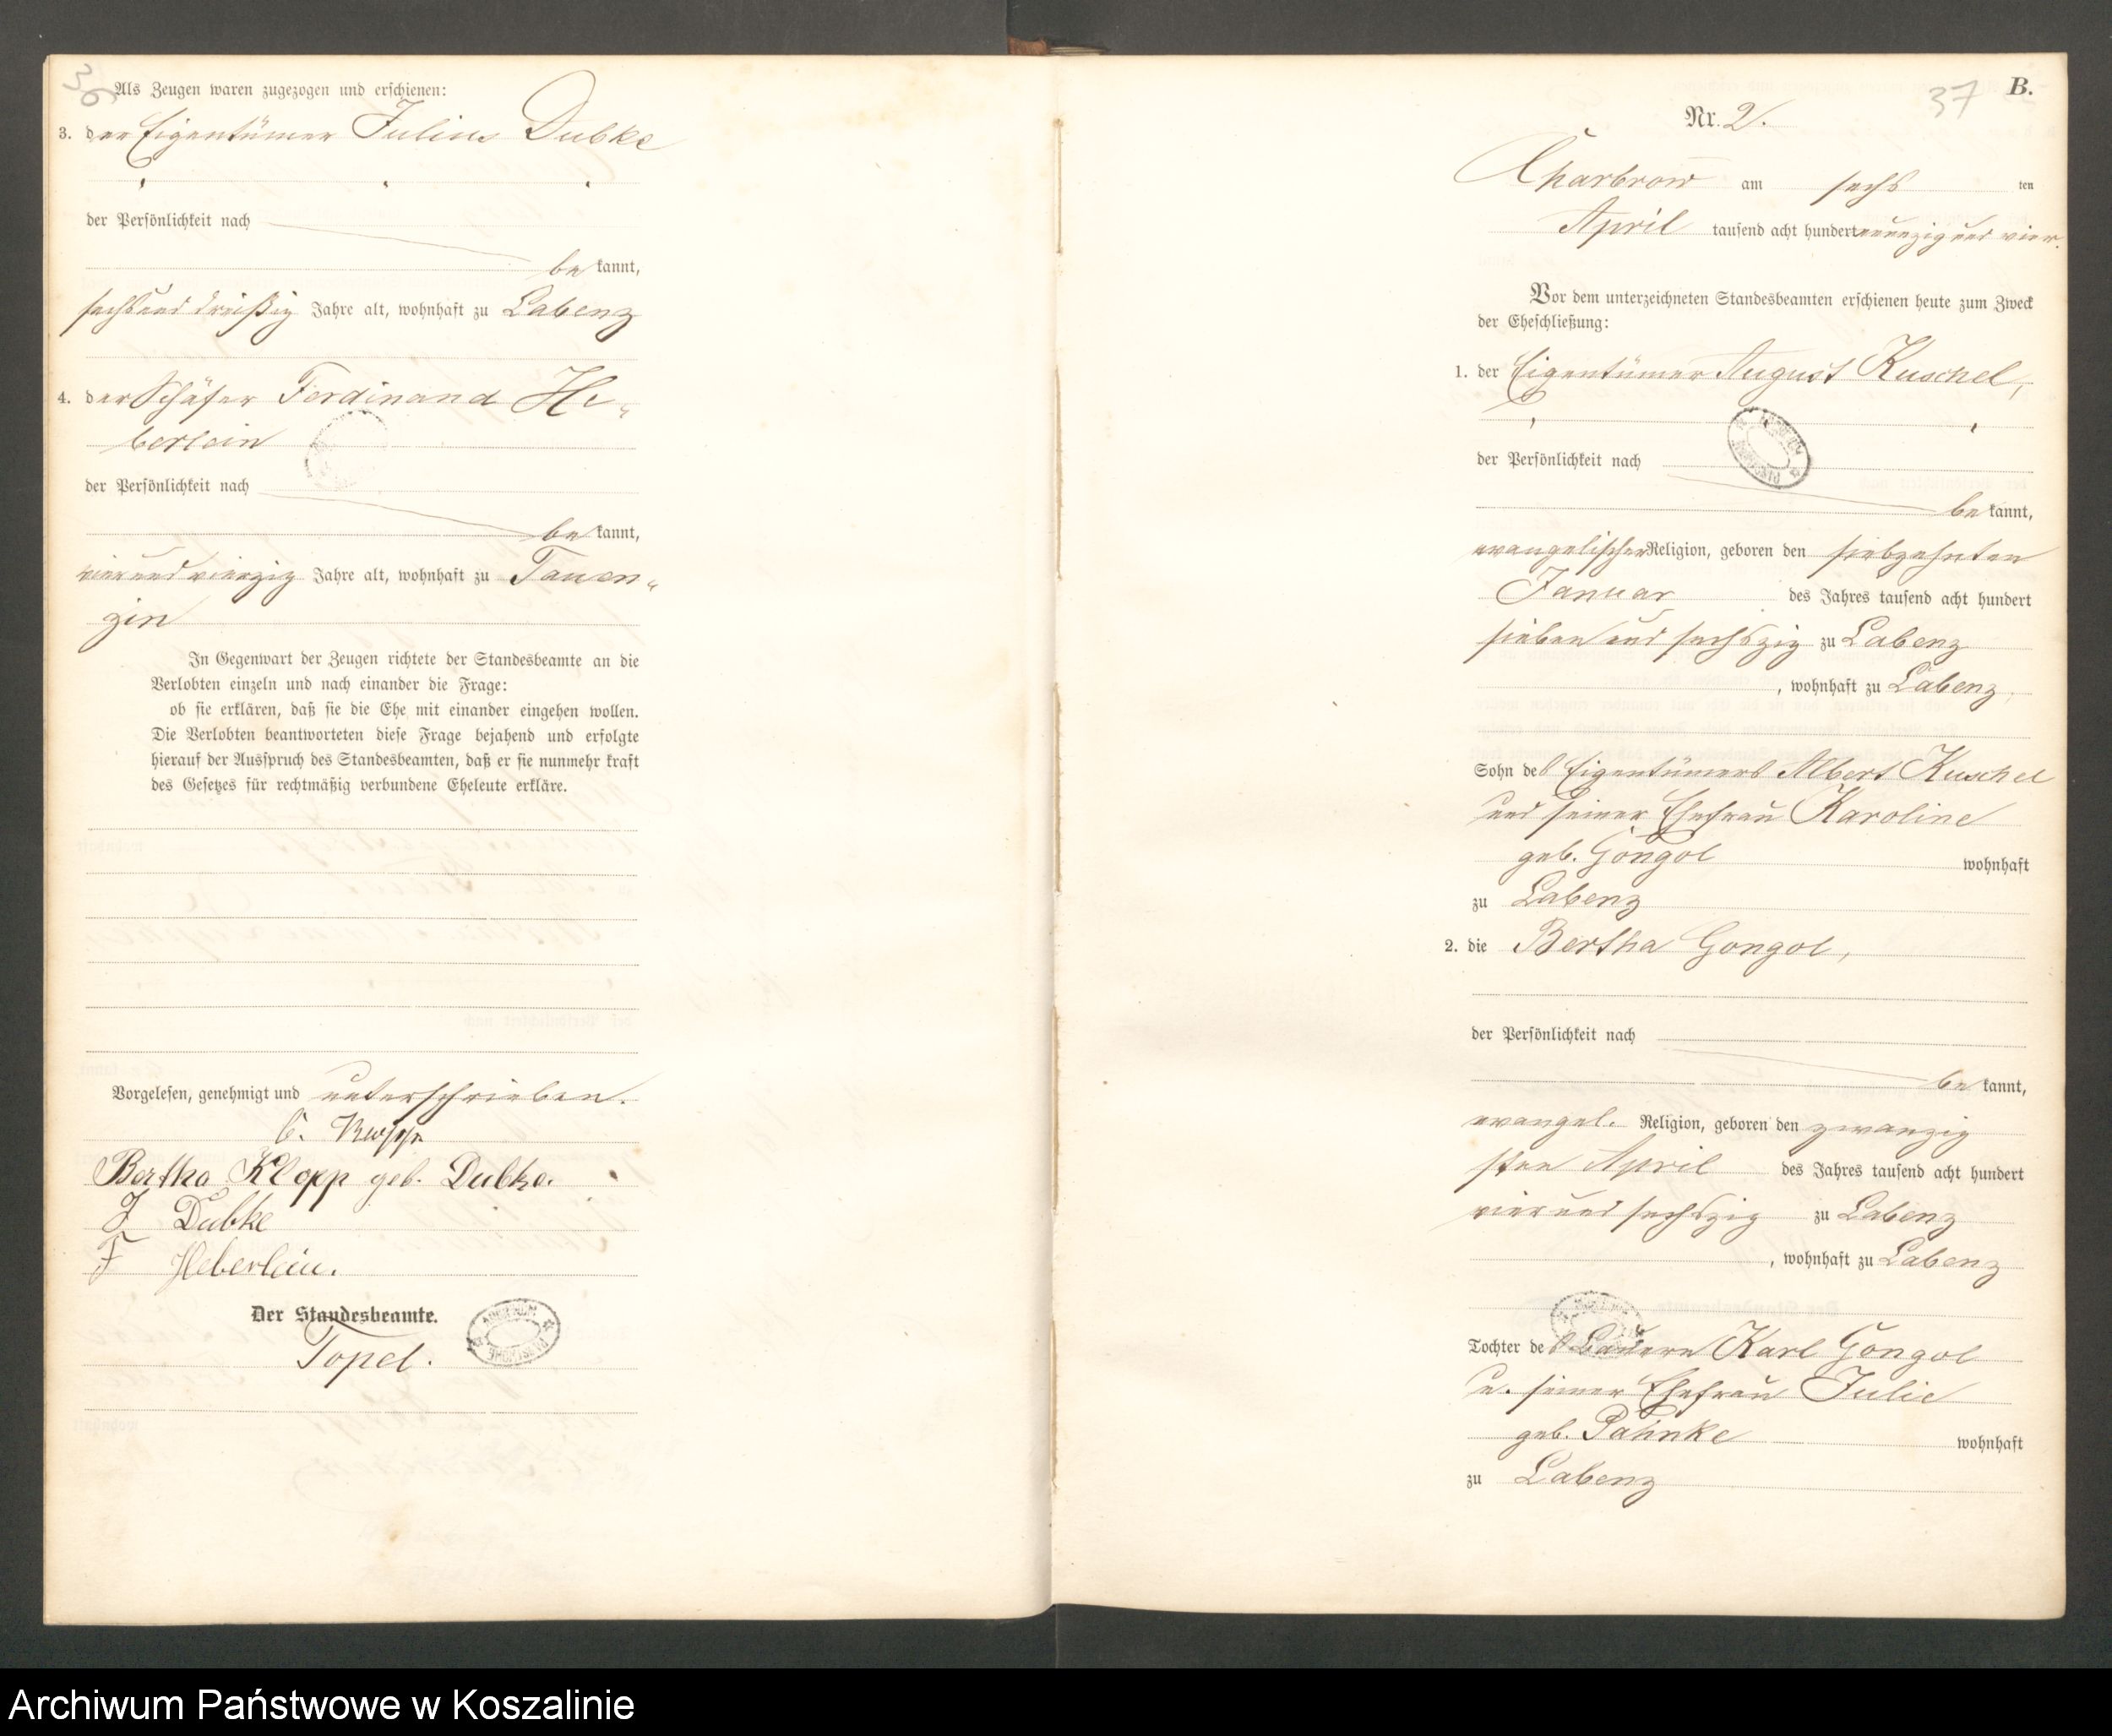 36
Als Zeugen waren zugezogen und erschienen:
3. der Eigentümer Julius Dubke
der Persönlichkeit nach
bekannt,
sechsunddreißig Jahre alt, wohnhaft zu Labenz
4. der Schäfer Ferdinand He-
berlein
der Persönlichkeit nach
bekannt,
vierundvierzig Jahre alt, wohnhaft zu Tauen-
zin
In Gegenwart der Zeugen richtete der Standesbeamte an die
Verlobten einzeln und nach einander die Frage:
ob sie erklären, daß sie die Ehe mit einander eingehen wollen.
Die Verlobten beantworteten diese Frage bejahend und erfolgte
hierauf der Ausspruch des Standesbeamten, daß er sie nunmehr kraft
des Gesetzes für rechtmäßig verbundene Eheleute erkläre.
Vorgelesen, genehmigt und unterschrieben.
Bertha Klopp geb. Dubke.
J Dubke
F Heberlein.
Der Standesbeamte.
Topel.
37
B.
Nr. 2.
Charbrow am sechs ten
April tausend acht hundert neunzig und vier.
Vor dem unterzeichneten Standesbeamten erschienen heute zum Zweck
der Eheschließung:
1. der Eigentümer August Kuschel,
der Persönlichkeit nach
bekannt,
evangelischer Religion, geboren den siebzehnten
Januar des Jahres tausend acht hundert
sieben und sechszig zu Labenz
, wohnhaft zu Labenz,
Sohn des Eigentümers Albert Kuschel
und seiner Ehefrau Karoline
geb. Gongol wohnhaft
zu Labenz
2. die Bertha Gongol,
der Persönlichkeit nach
bekannt,
evangel. Religion, geboren den zwanzig
sten April des Jahres tausend acht hundert
vier und sechszig zu Labenz
, wohnhaft zu Labenz
Tochter des Bauern Karl Gongol
u. seiner Ehefrau Julie
geb. Pahnke wohnhaft
zu Labenz
Archiwum Państwowe w Koszalinie